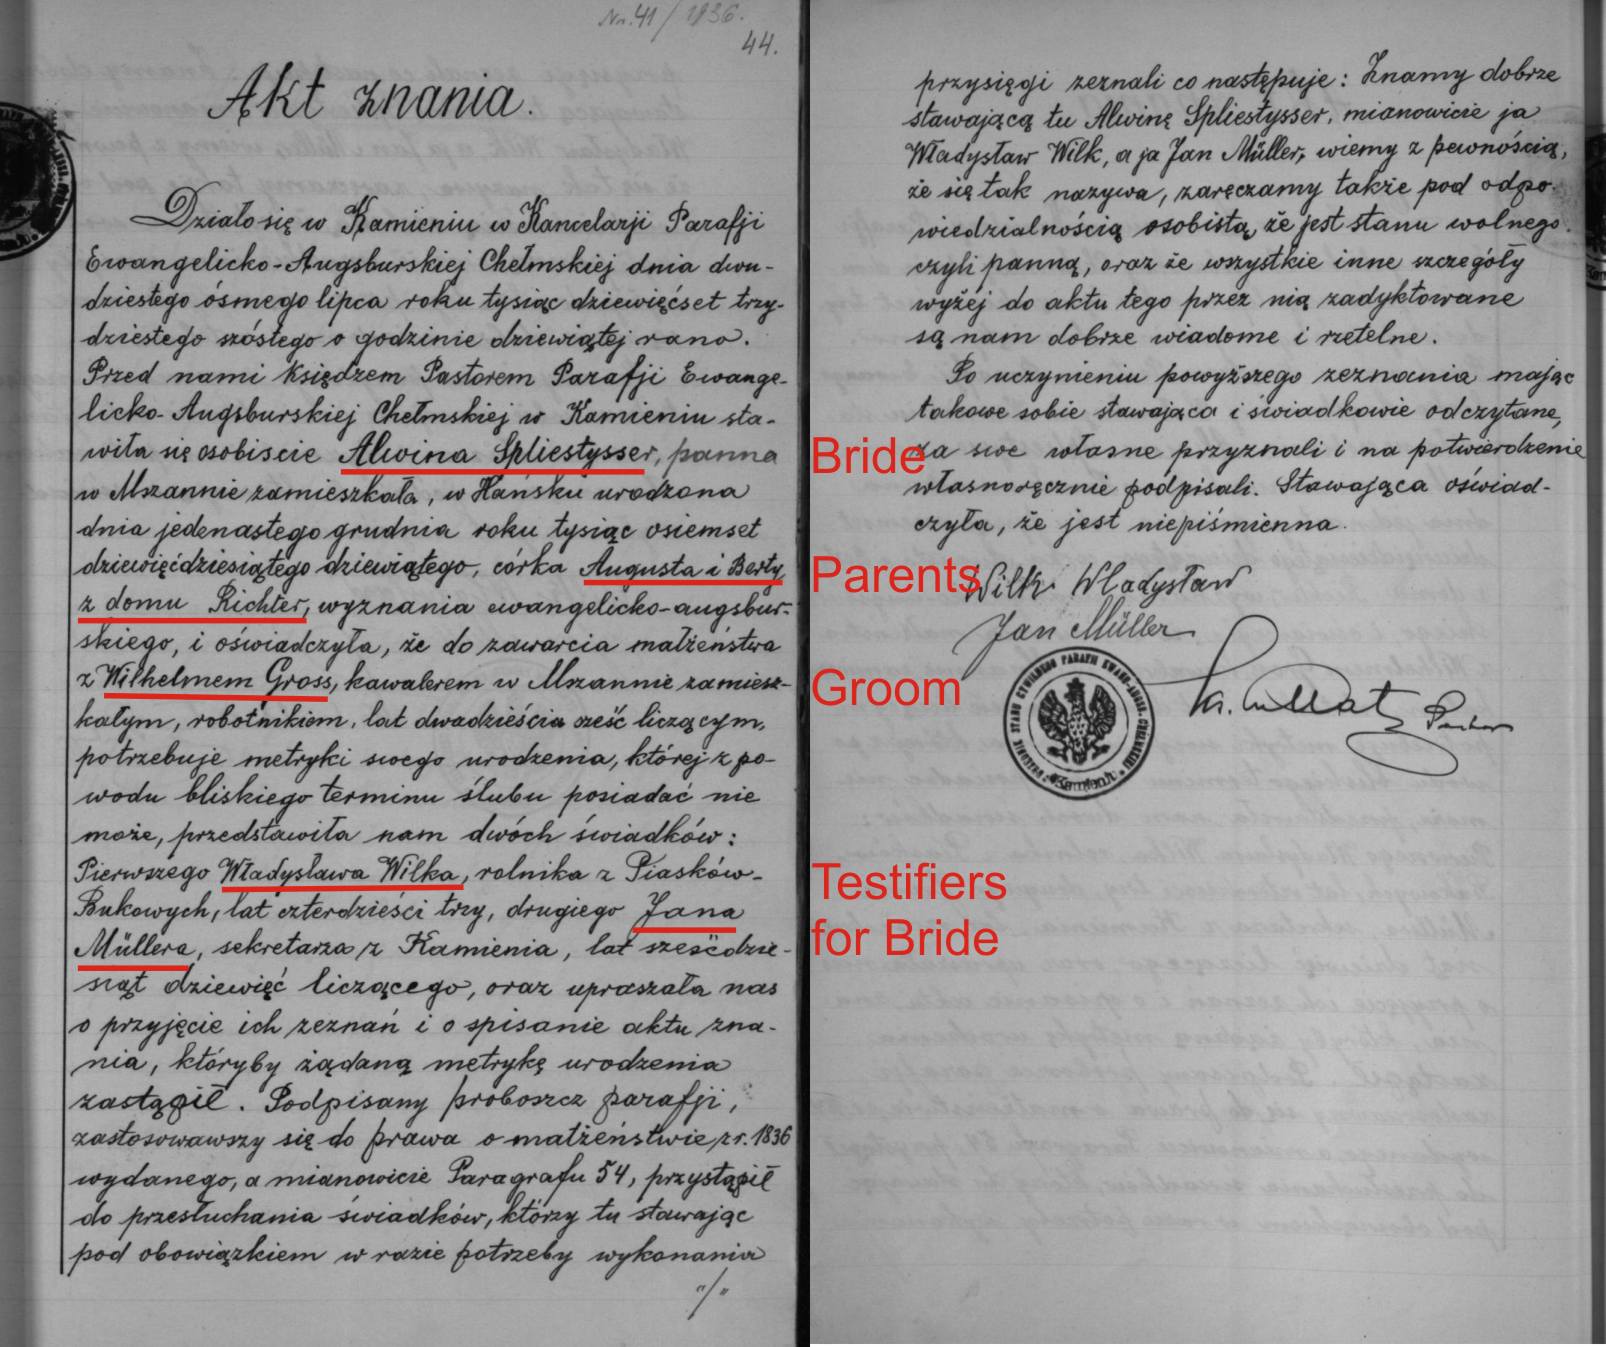 Nr. 41 / 1936.
44.
Akt znania.
Działo się w Kamieniu w Kancelarji Parafji
Ewangelicko-Augsburskiej Chełmskiej dnia dwu-
dziestego ósmego lipca roku tysiąc dziewięćset trzy-
dziestego szóstego o godzinie dziewiątej rano.
Przed nami Księdzem Pastorem Parafji Ewange-
licko-Augsburskiej Chełmskiej w Kamieniu sta-
wiła się osobiście Alwina Spliestysser, panna
w Mszannie zamieszkała, w Hańsku urodzona
dnia jedenastego grudnia roku tysiąc osiemset
dziewięćdziesiątego dziewiątego, córka Augusta i Berty
z domu Richter, wyznania ewangelicko-augsbur-
skiego, i oświadczyła, że do zawarcia małżeństwa
z Wilhelmem Gross, kawalerem w Mszannie zamiesz-
kałym, robotnikiem, lat dwadzieścia sześć liczącym,
potrzebuje metryki swego urodzenia, której z po-
wodu bliskiego terminu ślubu posiadać nie
może, przedstawiła nam dwóch świadków:
Pierwszego Władysława Wilka, rolnika z Piasków-
Bukowych, lat czterdzieści trzy, drugiego Jana
Müllera, sekretarza z Kamienia, lat sześćdzie-
siąt dziewięć liczącego, oraz upraszała nas
o przyjęcie ich zeznań i o spisanie aktu zna-
nia, któryby żądaną metrykę urodzenia
zastąpił. Podpisany proboszcz parafji,
zastosowawszy się do prawa o małżeństwie z r. 1836
wydanego, a mianowicie Paragrafu 54, przystąpił
do przesłuchania świadków, którzy tu stawając
pod obowiązkiem w razie potrzeby wykonania
"/"
przysięgi zeznali co następuje: Znamy dobrze
stawającą tu Alwinę Spliestysser, mianowicie ja
Władysław Wilk, a ja Jan Müller, wiemy z pewnością,
że się tak nazywa, zaręczamy także pod odpo-
wiedzialnością osobistą, że jest stanu wolnego
czyli panną, oraz że wszystkie inne szczegóły
wyżej do aktu tego przez nią zadyktowane
są nam dobrze wiadome i rzetelne.
Po uczynieniu powyższego zeznania mając
takowe sobie stawająca i świadkowie odczytane,
Bride
za swe własne przyznali i na potwierdzenie
własnoręcznie podpisali. Stawająca oświad-
czyła, że jest niepiśmienna.
Parents
Wilk Władysław
Jan Müller
Groom
Ks. Pastor
Testifiers
for Bride